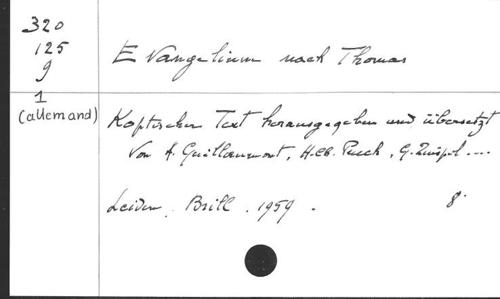 320
125
9
1
(allemand)
Evangelium nach Thomas
Koptischer Text herausgegeben und übersetzt
von A. Guillaumont, H.Ch. Puech, G. Quispel ....
Leiden. Brill. 1959. 8°